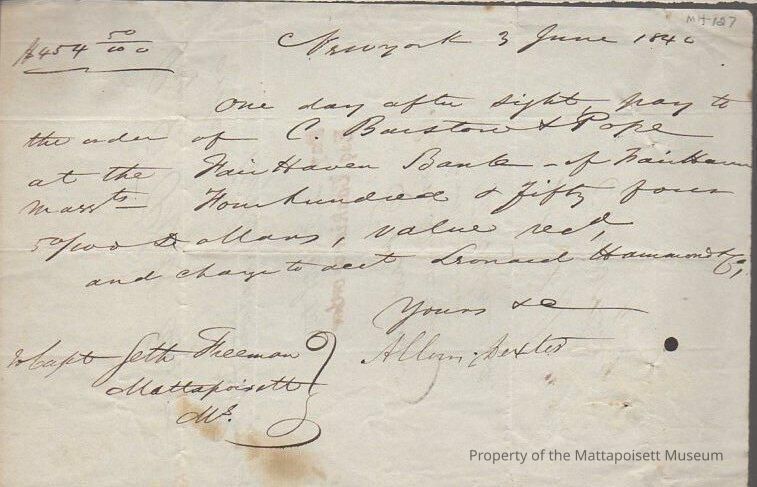 MH-127
$454 50/100
Newyork 3 June 1840
One day after sight pay to
the order of C. Barstow & Pope
at the FairHaven Bank - of FairHaven
Massts Four hundred & fifty four
50/100 Dollars, value recd,
and charge to acct Leonard Hammond & Co,
Yours &c
Allen Dexter
To Capt Seth Freeman
Mattapoisett
Ms.
Property of the Mattapoisett Museum